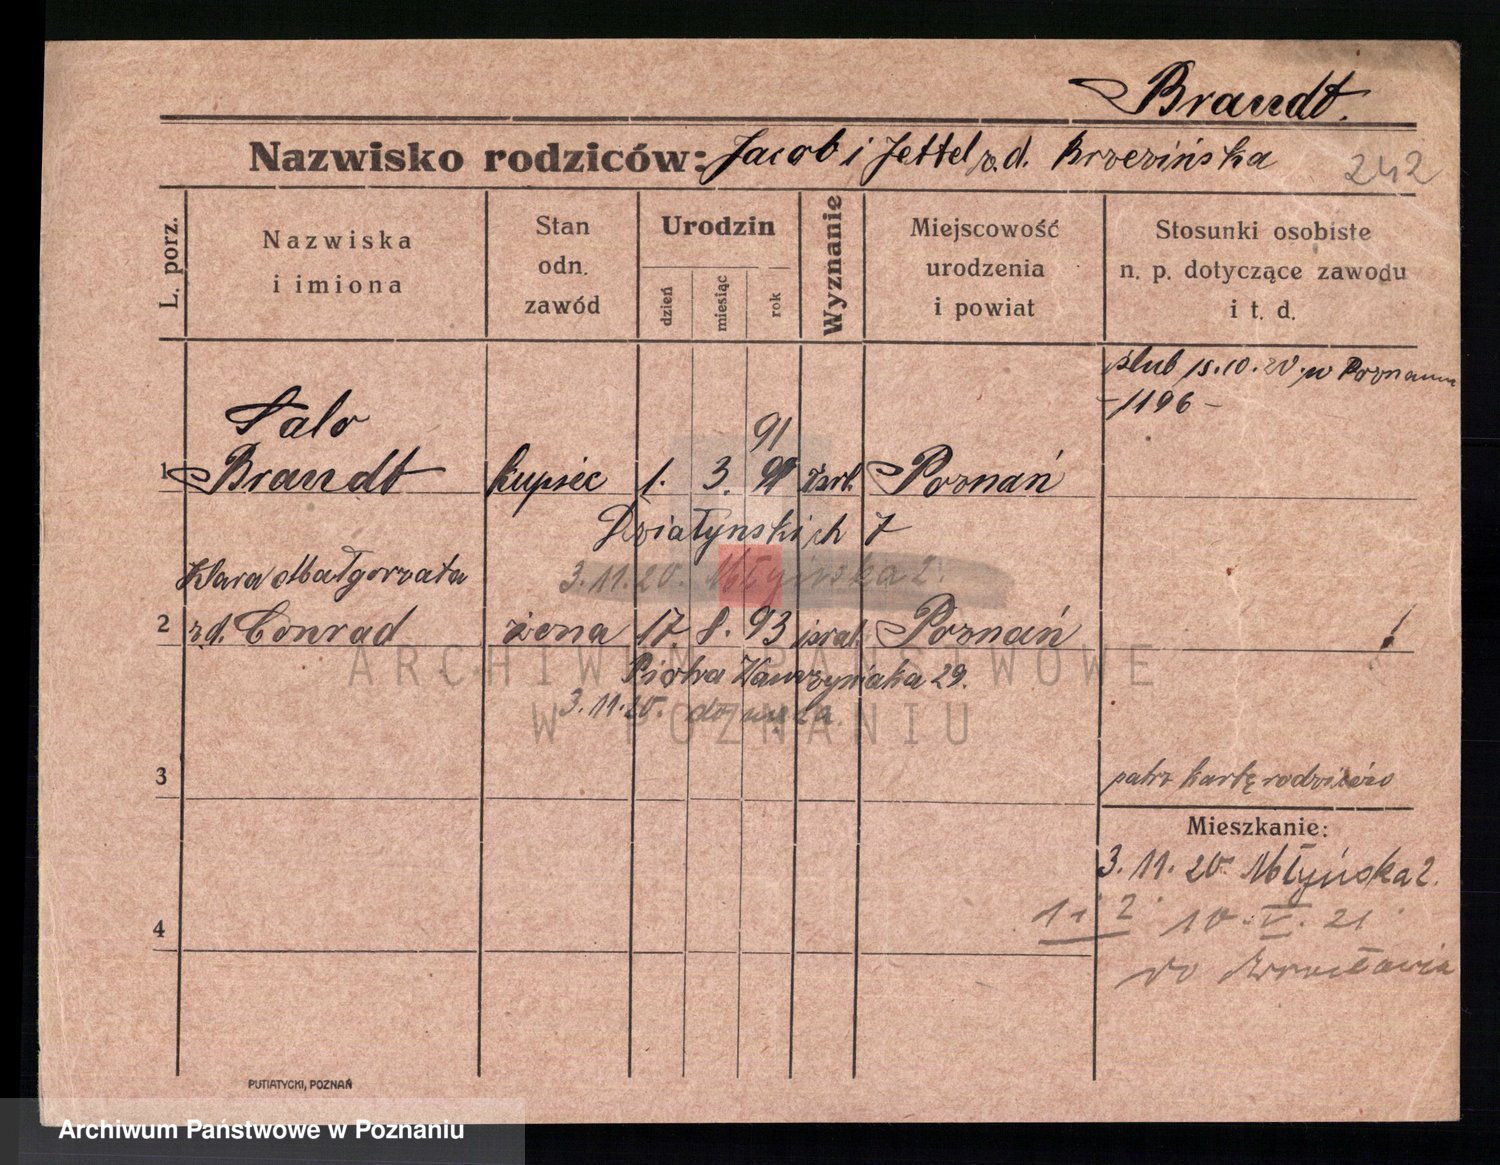 Brandt.
Nazwisko rodziców: Jacob i Jettel z. d. Brzezińska
242
L. porz.
Nazwiska
i imiona
Stan
odn.
zawód
Urodzin
dzień
miesiąc
rok
Wyznanie
Miejscowość
urodzenia
i powiat
Stosunki osobiste
n. p. dotyczące zawodu
i t. d.
ślub 15.10.20 w Poznaniu
-1196-
Salo
91
1 Brandt kupiec 1. 3. Poznań
Działyńskich 7
Klara Małgorzata
3.11.20. Młyńska 2.
2 z d. Conrad żona 17 8. 93 izral. Poznań
Piotra Wawrzyniaka 29.
3.11.20. do męża.
3
patrz kartę rodziców
Mieszkanie:
3.11.20 Młyńska 2.
1 i 2 10.V.21
4
do Wrocławia
PUTIATYCKI, POZNAŃ
ARCHIWUM PAŃSTWOWE
W POZNANIU
Archiwum Państwowe w Poznaniu